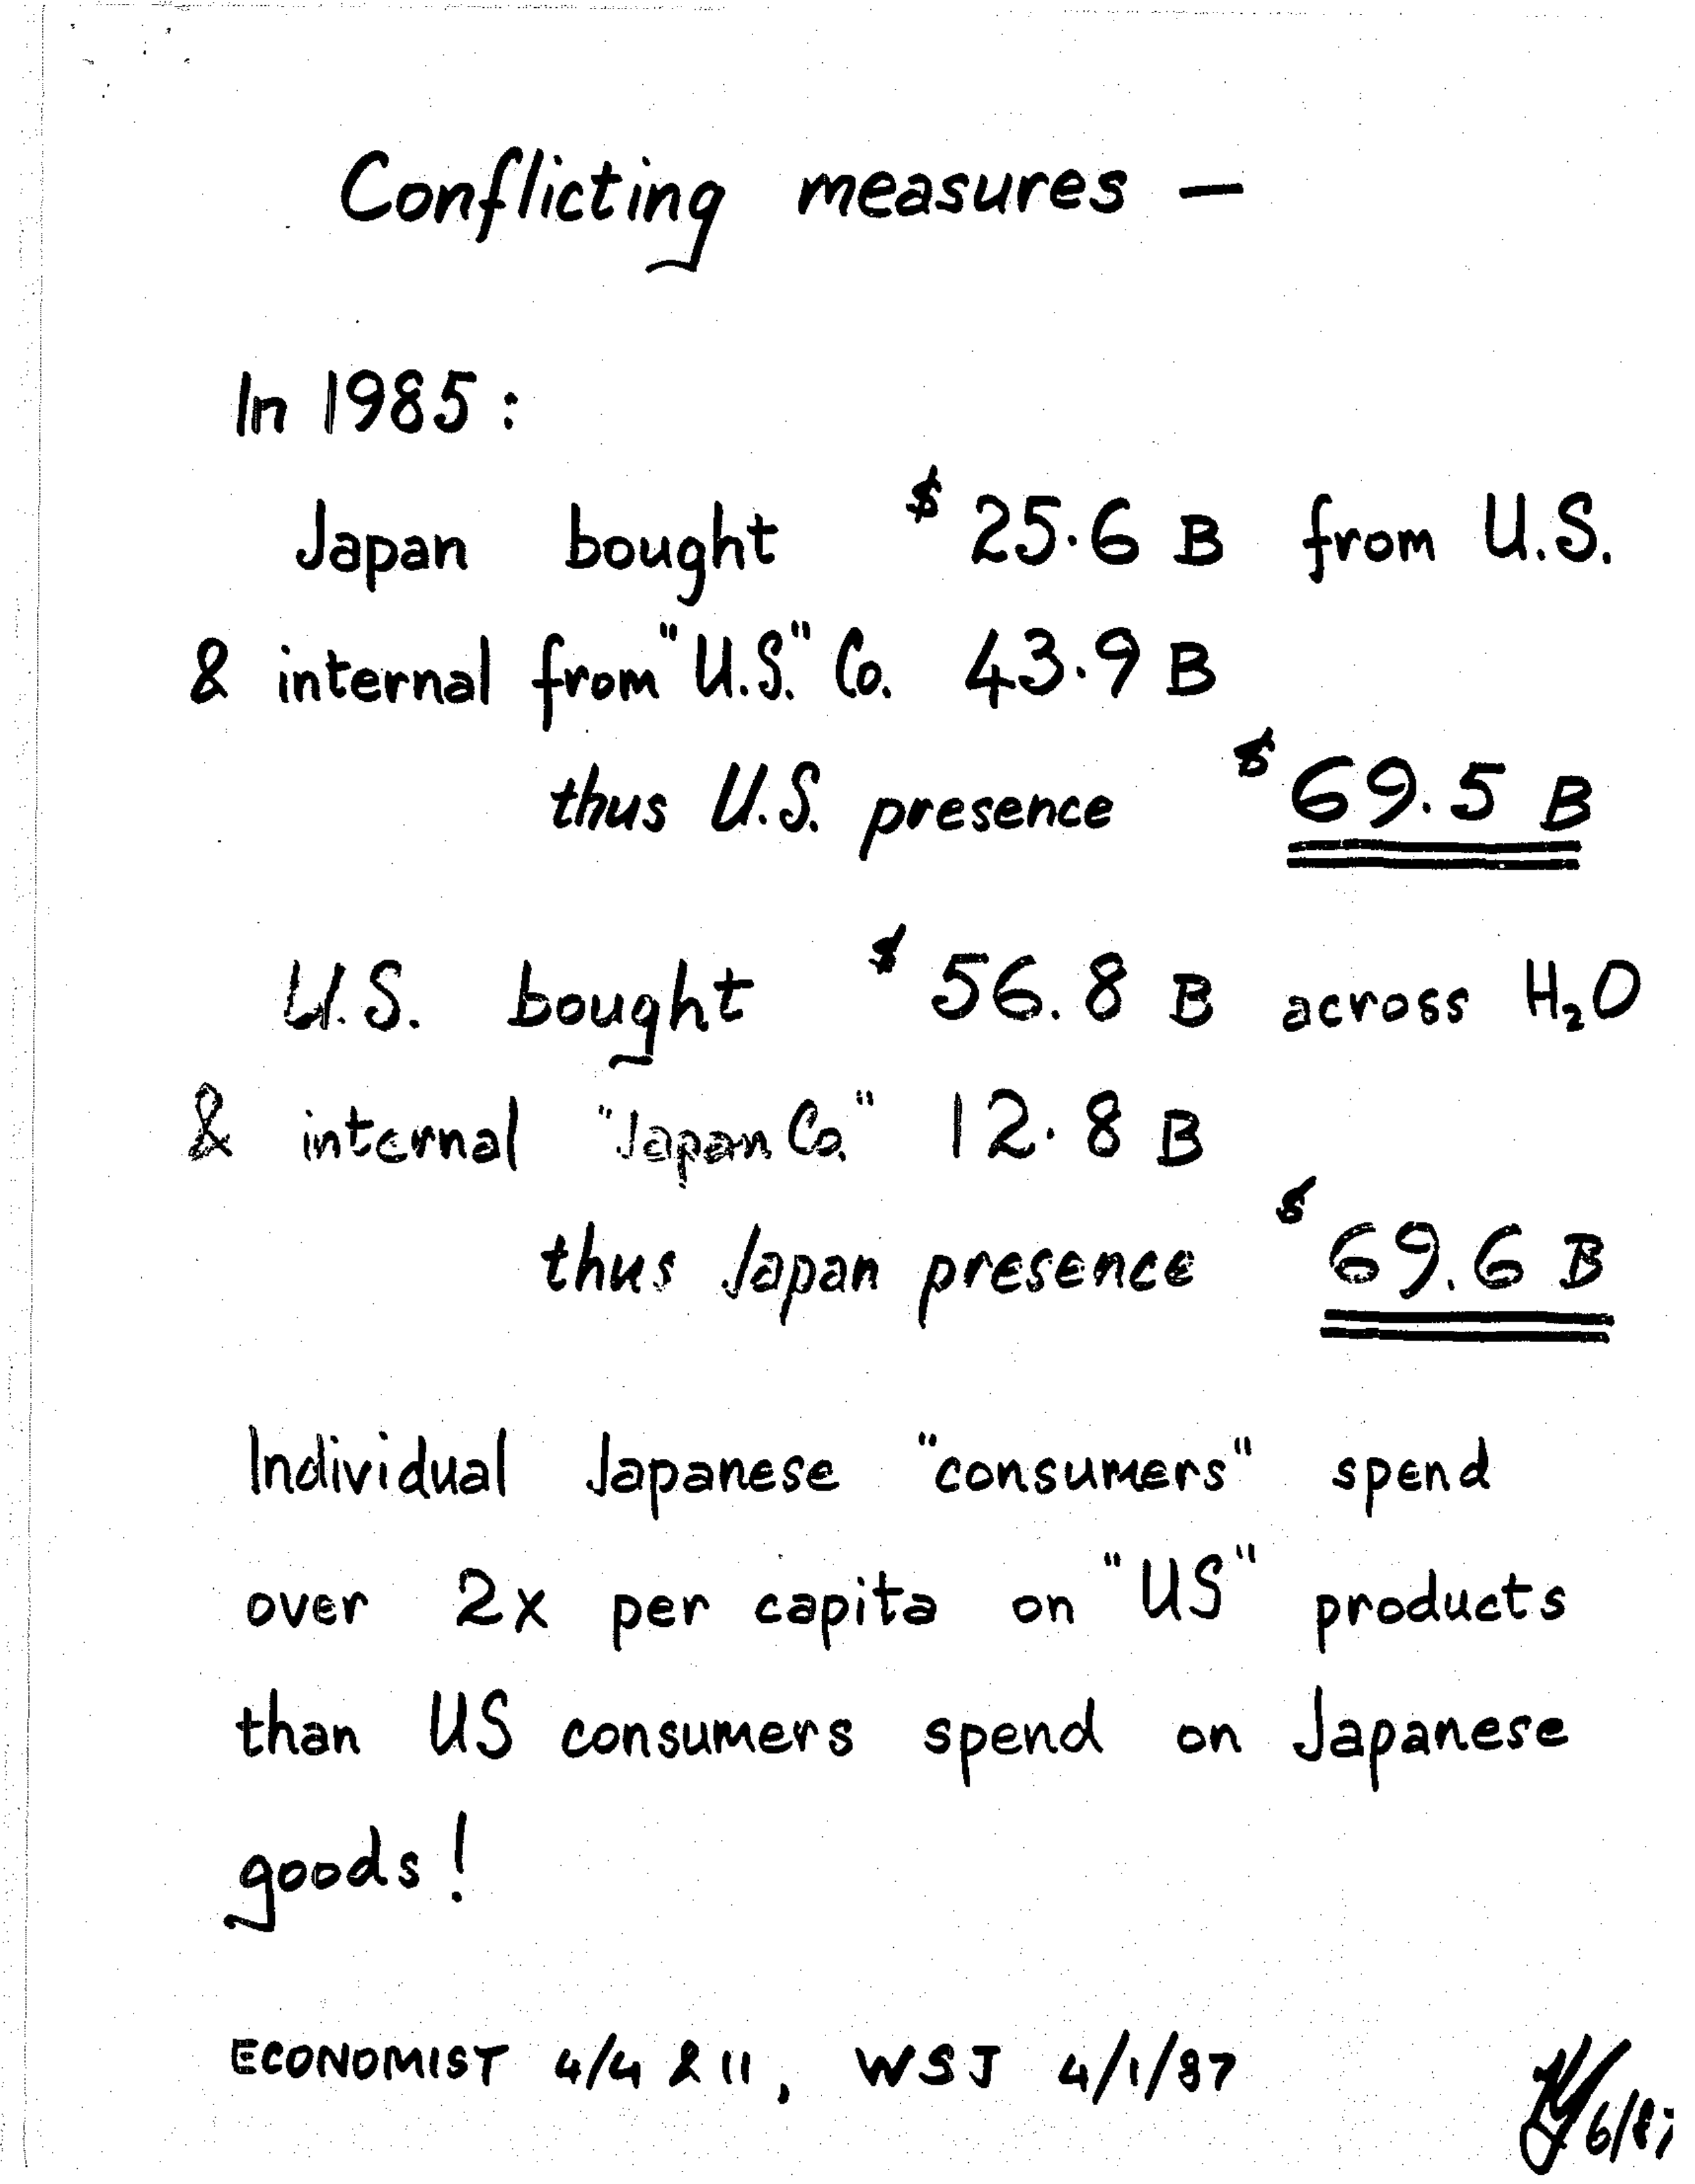 Conflicting measures —
In 1985 :
Japan bought $ 25.6 B from U.S.
& internal from "U.S." Co. 43.9 B
thus U.S. presence $ 69.5 B
U.S. bought $ 56.8 B across H₂O
& internal "Japan Co." 12.8 B
thus Japan presence $ 69.6 B
Individual Japanese "consumers" spend
over 2x per capita on "US" products
than US consumers spend on Japanese
goods!
ECONOMIST 4/4 & 11, WSJ 4/1/87
6/87